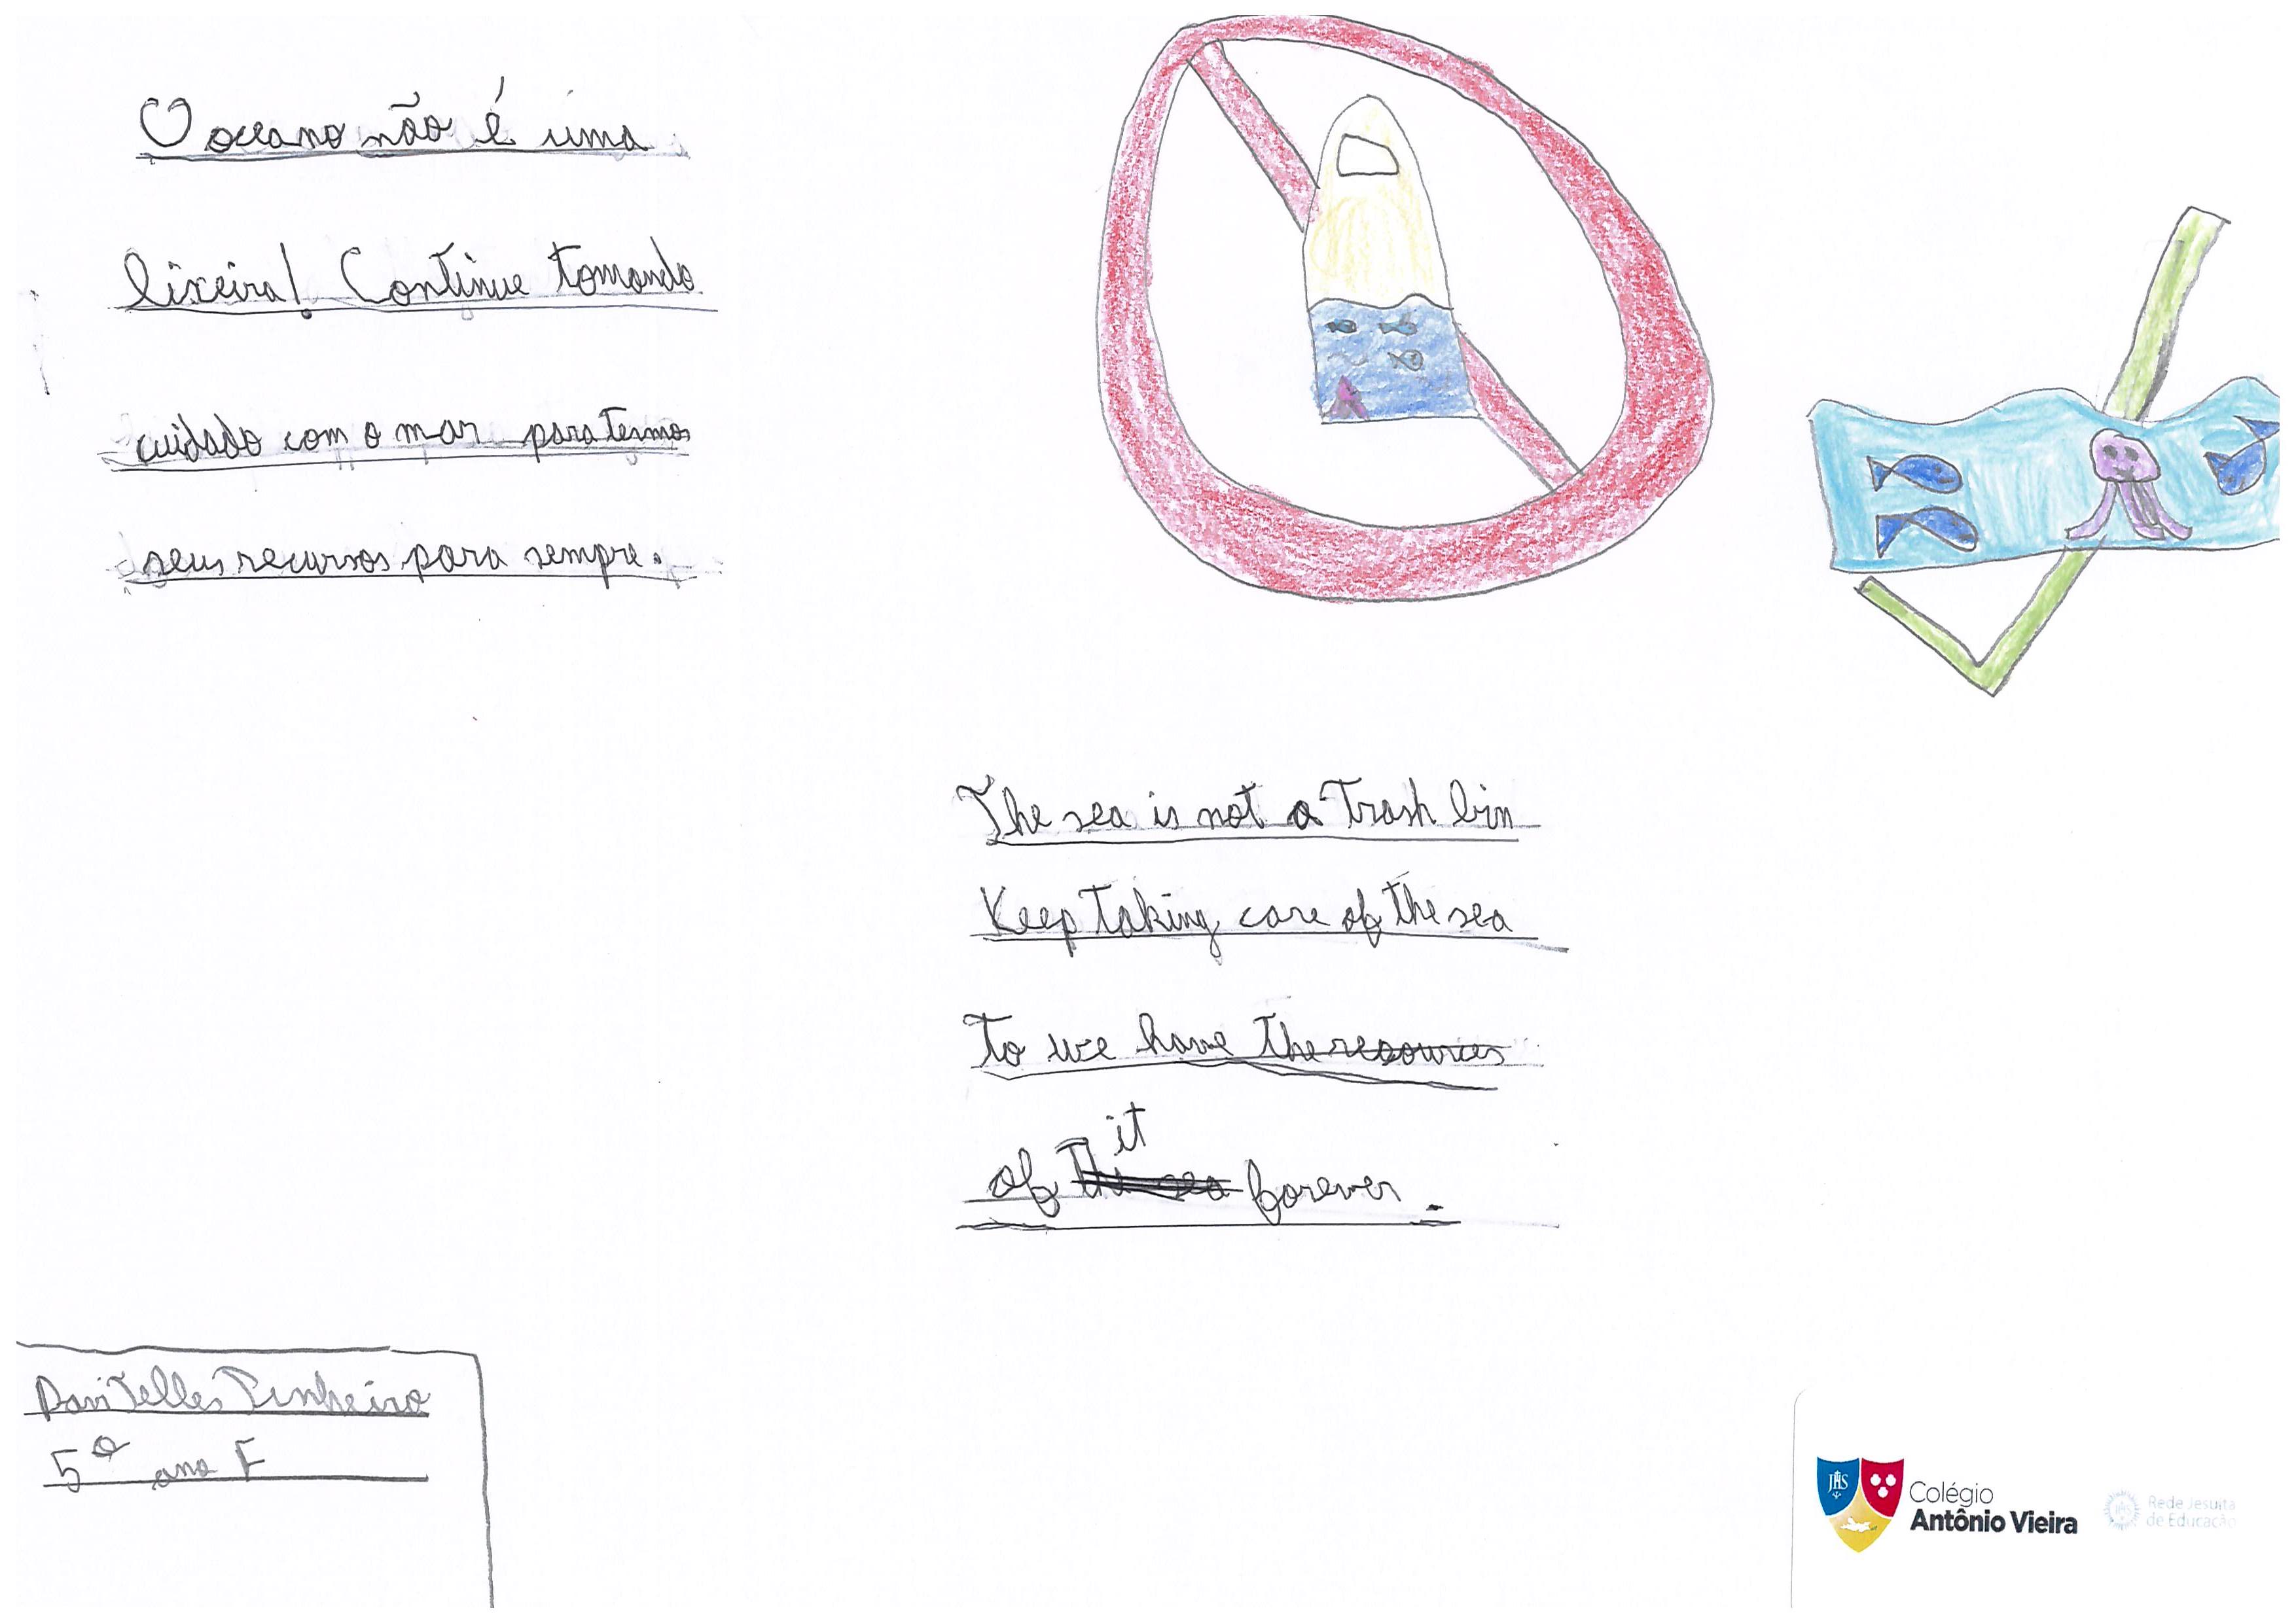 O oceano não é uma
lixeira! Continue tomando
cuidado com o mar para termos
seus recursos para sempre.
The sea is not a trash bin
Keep taking care of the sea
to we have the resources
it
of the sea forever.
Davi Telles Pinheiro
5º ano F
JHS
Colégio
Antônio Vieira
Rede Jesuíta
de Educação